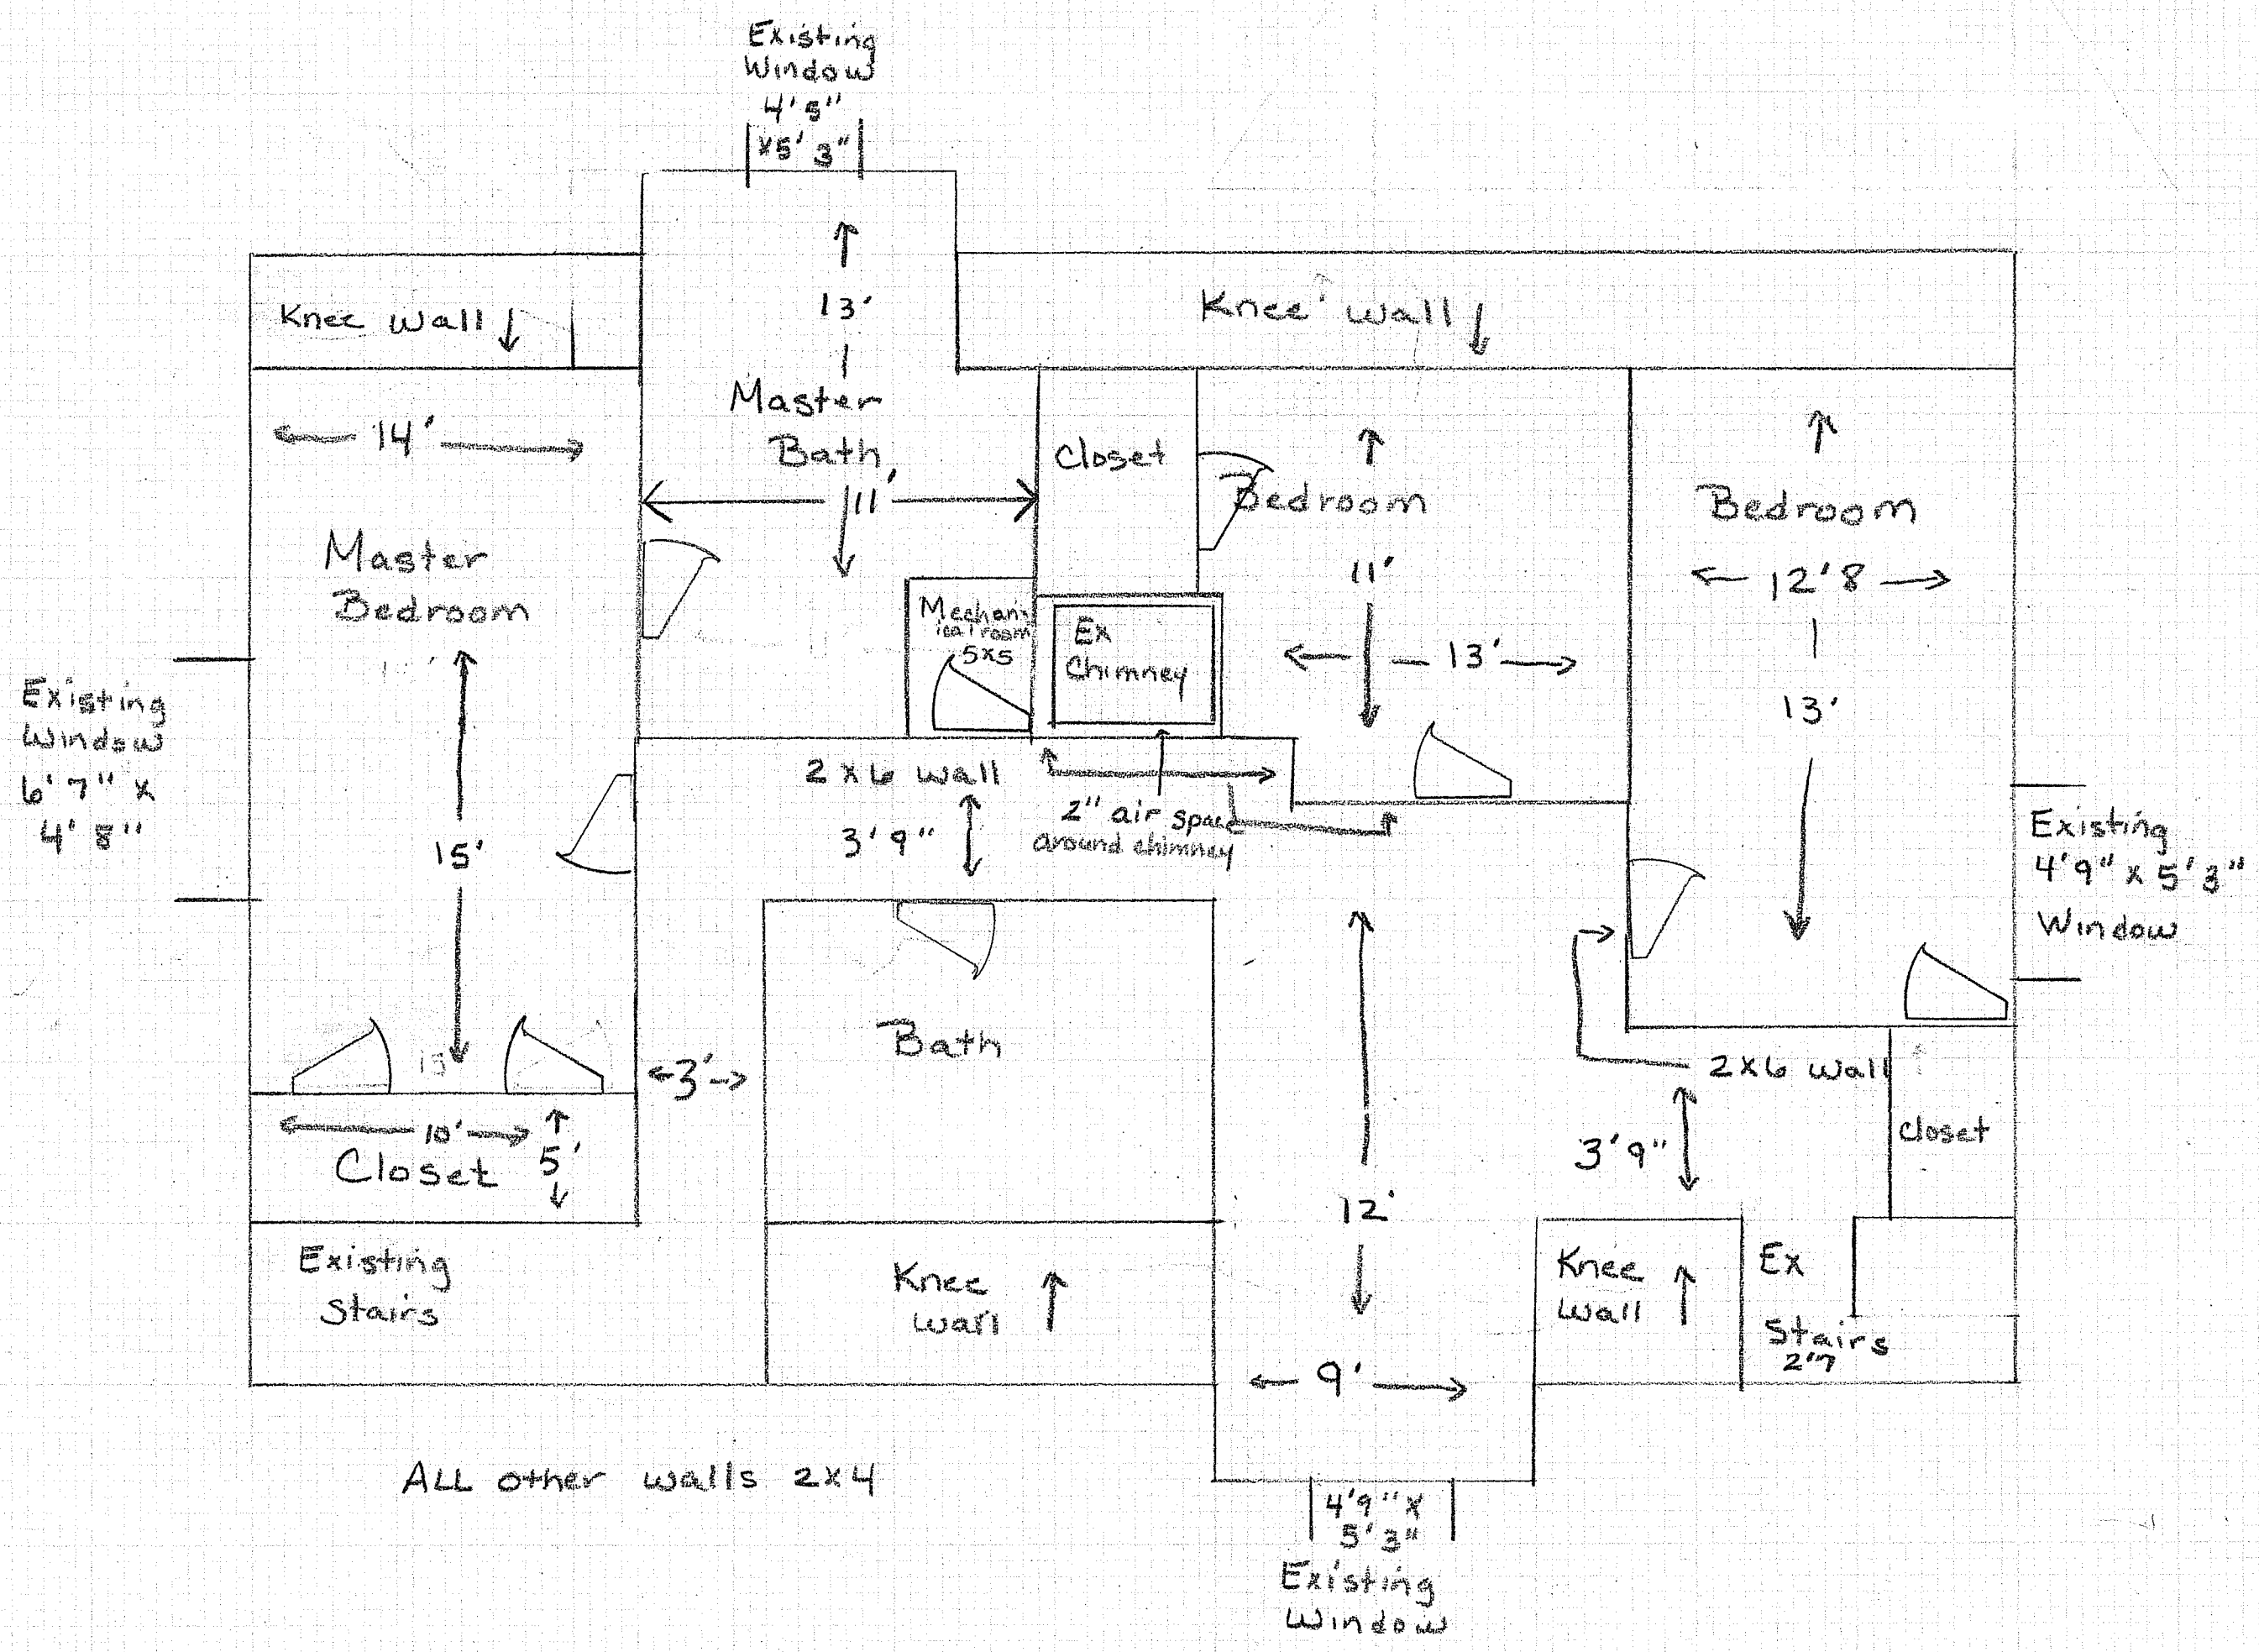 Existing
Window
4' 5"
x5' 3"
Knee Wall
13'
Knee Wall
14'
Master
Bath
11'
Closet
Bedroom
11'
13'
Bedroom
12'8
13'
Master
Bedroom
15'
Mechan-
ical room
5x5
Ex
Chimney
Existing
Window
6'7" x
4' 8"
2 x 6 wall
3' 9"
2" air space
around chimney
Existing
4'9" x 5'3"
Window
Bath
3'
12'
2x6 wall
3'9"
closet
10'
5'
Closet
Existing
Stairs
Knee
Wall
9'
Knee
Wall
Ex
Stairs
2'7
ALL other walls 2x4
4'9" x
5' 3"
Existing
Window